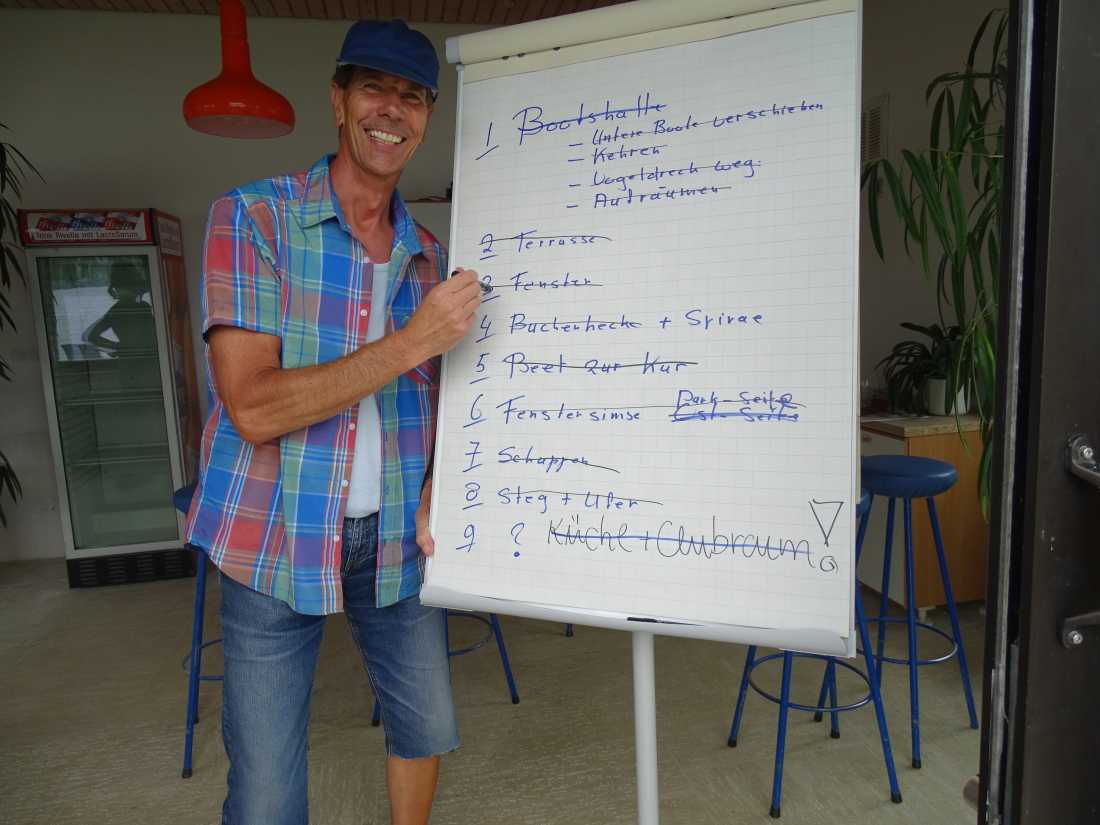 1 Bootshalle
- Untere Boote verschieben
- Kehren
- Vogeldreck weg.
- Aufräumen
2 Terrasse
3 Fenster
4 Buchenhecke + Spirae
5 Beet zur Kur
6 Fenstersimse Park-Seite
Ost-Seite
7 Schuppen
8 Steg + Ufer
9 ? Küche + Clubraum!